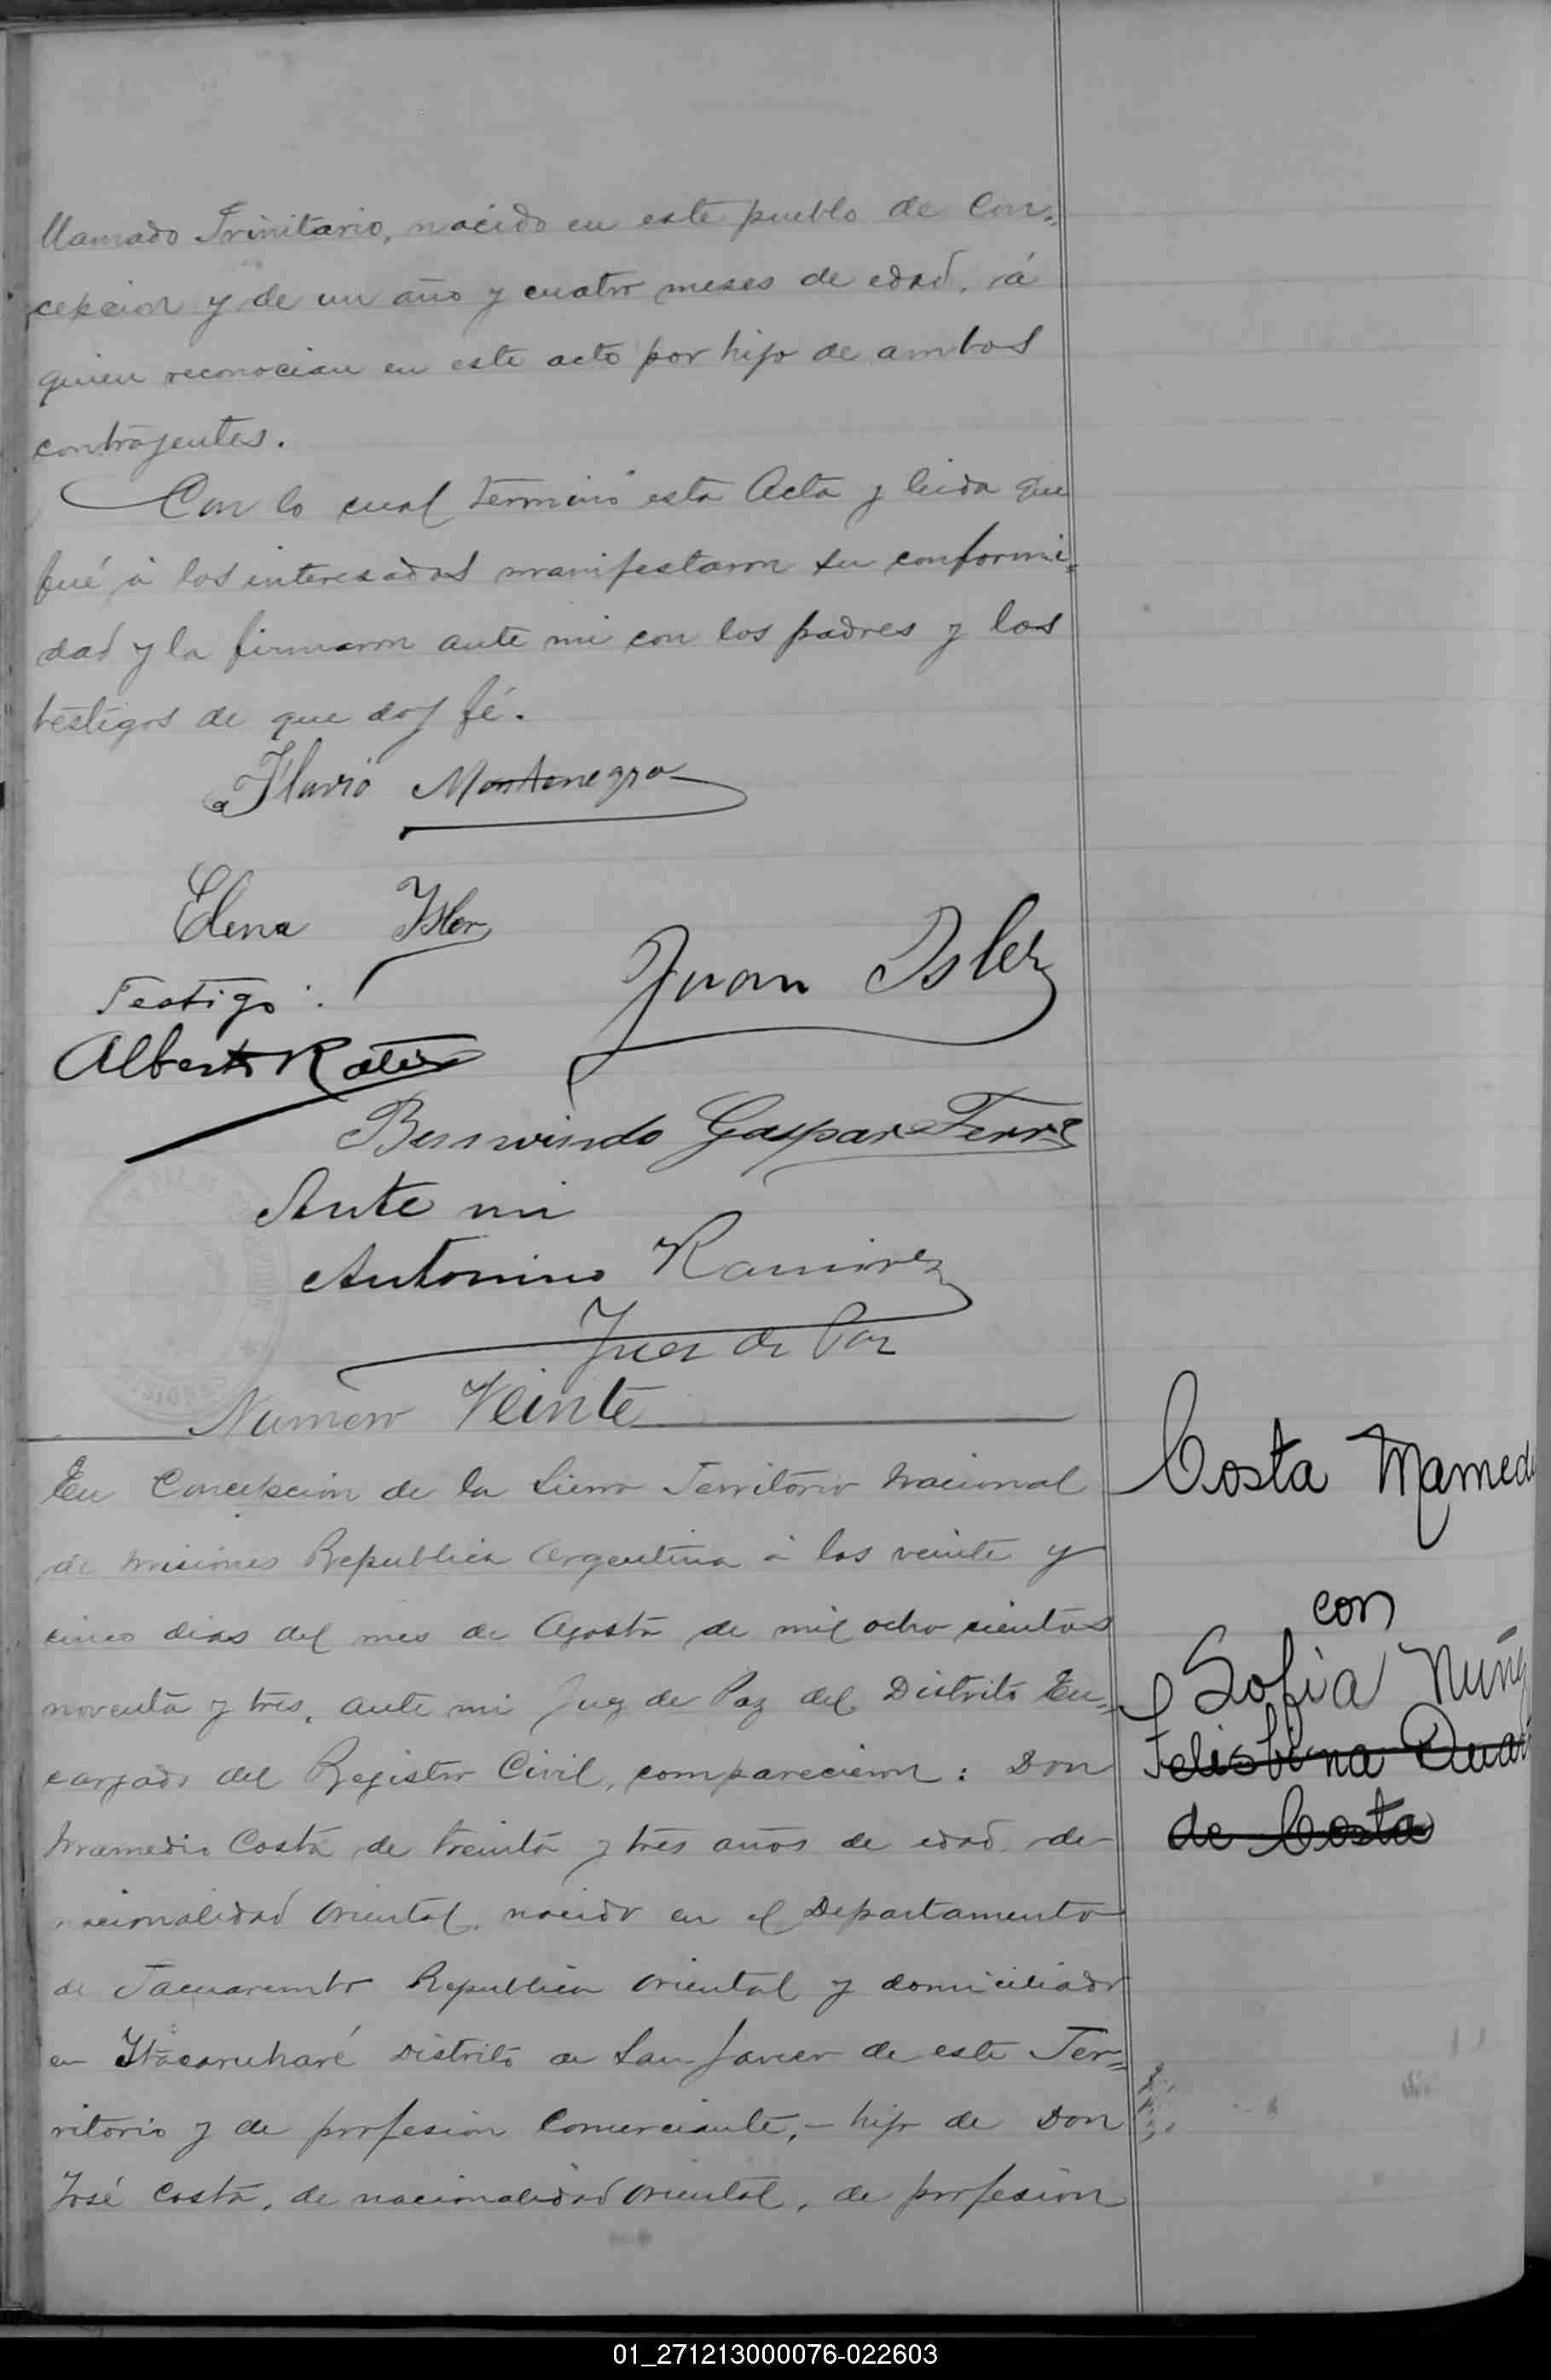 llamado Trinitario, nacido en este pueblo de Con=
cepcion y de un año y cuatro meses de edad, á
quien reconocian en este acto por hijo de ambos
contrajentes.
Con lo cual terminó esta Acta y leida que
fué á los interesados manifestaron su conformi=
dad y la firmaron ante mi con los padres y los
testigos de que doy fé.
Flavio Montenegro
Elena Isler
Juan Isler
Testigo:
Alberto
Benvindo Gaspar Ferr
Ante mi
Antonino Ramirez
Juez de Paz
Numero Veinte
En Concepcion de la Sierra Territorio Nacional
de Misiones Republica Argentina á los veinte y
cinco dias del mes de Agosto de mil ocho cientos
noventa y tres, ante mi Juez de Paz del Distrito En=
cargado del Registro Civil, comparecieron: Don
Mamedio Costa de treinta y tres años de edad de
nacionalidad Oriental, nacido en el Departamento
de Tacuarembo Republica Oriental y domiciliado
en Itacaruharé Distrito de San Javier de este Ter=
ritorio y de profesion Comerciante,- hijo de Don
José Costa, de nacionalidad Oriental, de profesion
Costa Mamed
con
Sofia Nuñe
Felisbina Duar
de Costa
01_271213000076-022603